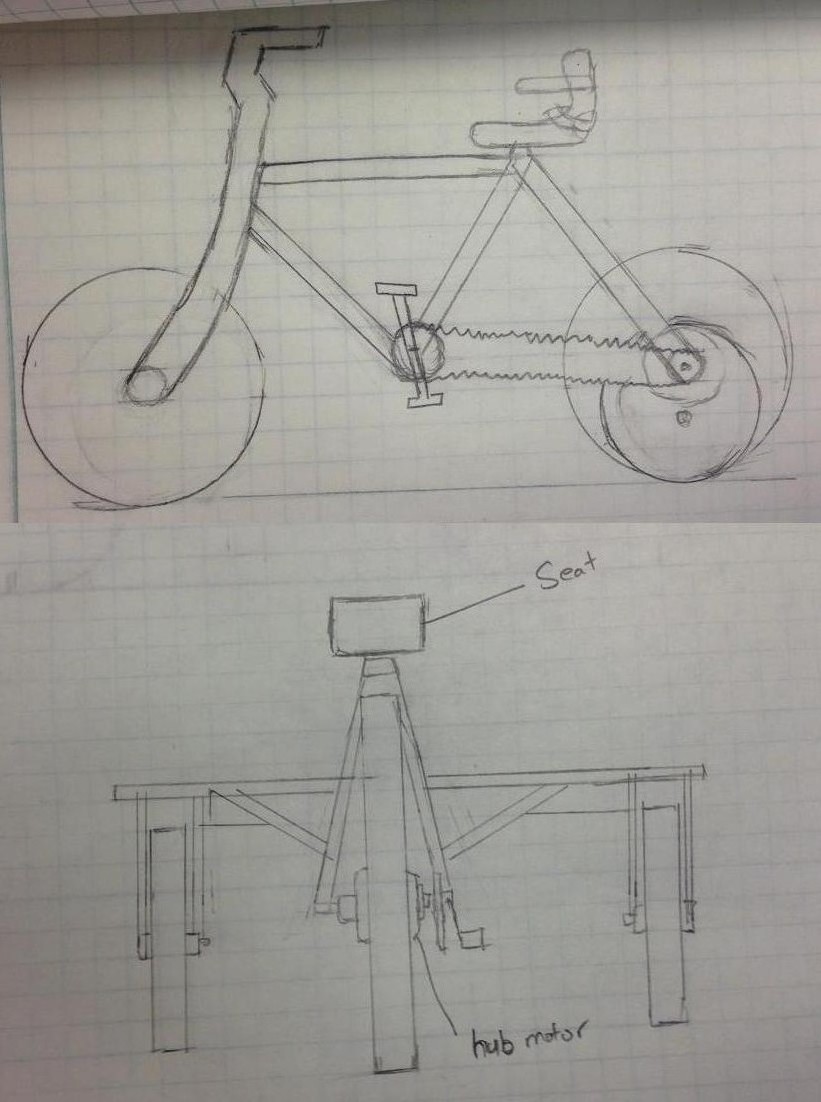 Seat
hub motor